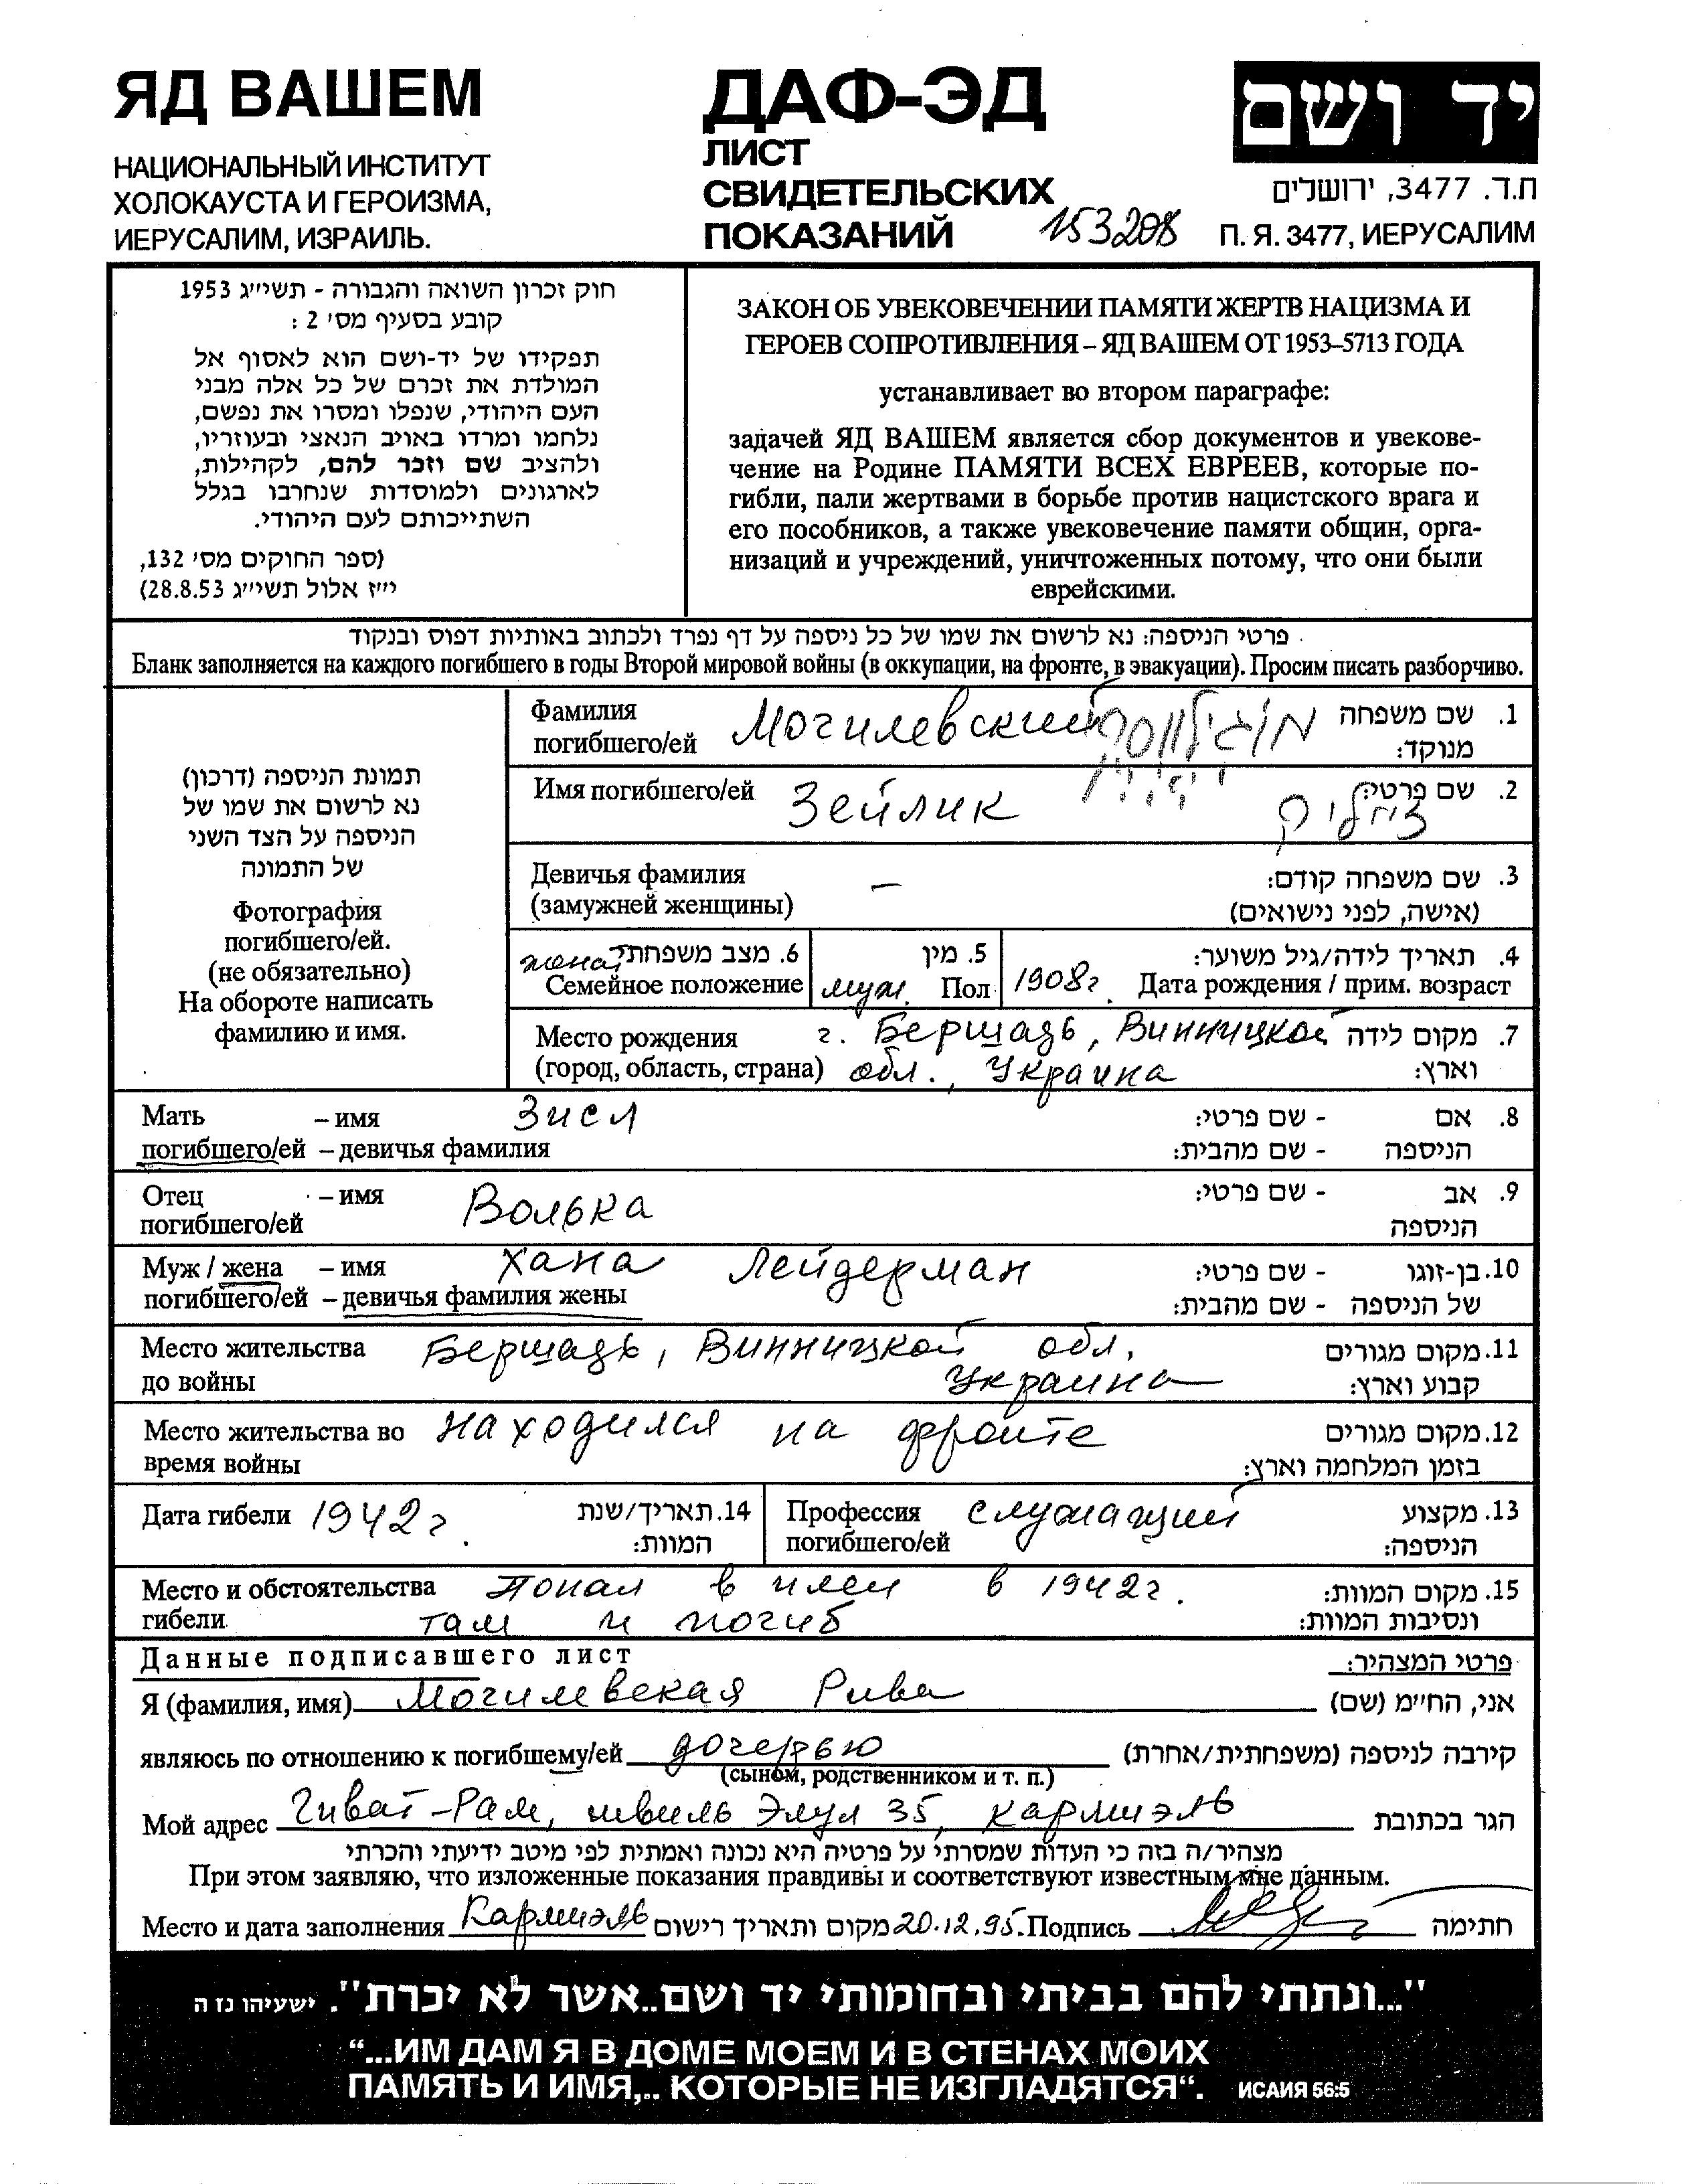 ЯД ВАШЕМ
НАЦИОНАЛЬНЫЙ ИНСТИТУТ
ХОЛОКАУСТА И ГЕРОИЗМА,
ИЕРУСАЛИМ, ИЗРАИЛЬ.
ДАФ-ЭД
ЛИСТ
СВИДЕТЕЛЬСКИХ
ПОКАЗАНИЙ
יד ושם
ת.ד. 3477, ירושלים
П. Я. 3477, ИЕРУСАЛИМ
חוק זכרון השואה והגבורה - תשי״ג 1953
קובע בסעיף מס׳ 2 :
תפקידו של יד-ושם הוא לאסוף אל
המולדת את זכרם של כל אלה מבני
העם היהודי, שנפלו ומסרו את נפשם,
נלחמו ומרדו באויב הנאצי ובעוזריו,
ולהציב שם וזכר להם, לקהילות,
לארגונים ולמוסדות שנחרבו בגלל
השתייכותם לעם היהודי.
(ספר החוקים מס׳ 132,
י״ז אלול תשי״ג 28.8.53)
ЗАКОН ОБ УВЕКОВЕЧЕНИИ ПАМЯТИ ЖЕРТВ НАЦИЗМА И
ГЕРОЕВ СОПРОТИВЛЕНИЯ – ЯД ВАШЕМ ОТ 1953–5713 ГОДА
устанавливает во втором параграфе:
задачей ЯД ВАШЕМ является сбор документов и увекове-
чение на Родине ПАМЯТИ ВСЕХ ЕВРЕЕВ, которые по-
гибли, пали жертвами в борьбе против нацистского врага и
его пособников, а также увековечение памяти общин, орга-
низаций и учреждений, уничтоженных потому, что они были
еврейскими.
פרטי הניספה: נא לרשום את שמו של כל ניספה על דף נפרד ולכתוב באותיות דפוס ובנקוד
Бланк заполняется на каждого погибшего в годы Второй мировой войны (в оккупации, на фронте, в эвакуации). Просим писать разборчиво.
תמונת הניספה (דרכון)
נא לרשום את שמו של
הניספה על הצד השני
של התמונה
Фотография
погибшего/ей.
(не обязательно)
На обороте написать
фамилию и имя.
Фамилия Могилевский 1. שם משפחה
погибшего/ей מנוקד:
Имя погибшего/ей Зейлик 2. שם פרטי:
זייליק
Девичья фамилия – 3. שם משפחה קודם:
(замужней женщины) (אישה, לפני נישואים)
женат 6. מצב משפחתי 5. מין 4. תאריך לידה/גיל משוער:
Семейное положение муж. Пол 1908г. Дата рождения / прим. возраст
Место рождения г. Бершадь, Винницкой 7. מקום לידה
(город, область, страна) обл., Украина וארץ:
Мать – имя Зисл 8. אם - שם פרטי:
погибшего/ей – девичья фамилия הניספה - שם מהבית:
Отец – имя Волька 9. אב - שם פרטי:
погибшего/ей הניספה
Муж / жена – имя Хана Лейдерман 10. בן-זוגו - שם פרטי:
погибшего/ей – девичья фамилия жены של הניספה - שם מהבית:
Место жительства Бершадь, Винницкой обл. 11. מקום מגורים
до войны Украина קבוע וארץ:
Место жительства во находился на фронте 12. מקום מגורים
время войны בזמן המלחמה וארץ:
Дата гибели 1942г. 14. תאריך/שנת Профессия служащий 13. מקצוע
המוות: погибшего/ей הניספה:
Место и обстоятельства Попал в плен в 1942г. 15. מקום המוות:
гибели там и погиб ונסיבות המוות:
Данные подписавшего лист פרטי המצהיר:
Я (фамилия, имя) Могилевская Рива אני, הח״מ (שם)
являюсь по отношению к погибшему/ей дочерью קירבה לניספה (משפחתית/אחרת)
(сыном, родственником и т. п.)
Мой адрес Гиват-Рам, швиль Элул 35, Кармиэль הגר בכתובת
מצהיר/ה בזה כי העדות שמסרתי על פרטיה היא נכונה ואמתית לפי מיטב ידיעתי והכרתי
При этом заявляю, что изложенные показания правдивы и соответствуют известным мне данным.
Место и дата заполнения Кармиэль מקום ותאריך רישום 20.12.95. Подпись חתימה
"...ונתתי להם בביתי ובחומותי יד ושם..אשר לא יכרת". ישעיהו נז ה
“...ИМ ДАМ Я В ДОМЕ МОЕМ И В СТЕНАХ МОИХ
ПАМЯТЬ И ИМЯ,.. КОТОРЫЕ НЕ ИЗГЛАДЯТСЯ“. ИСАИЯ 56:5